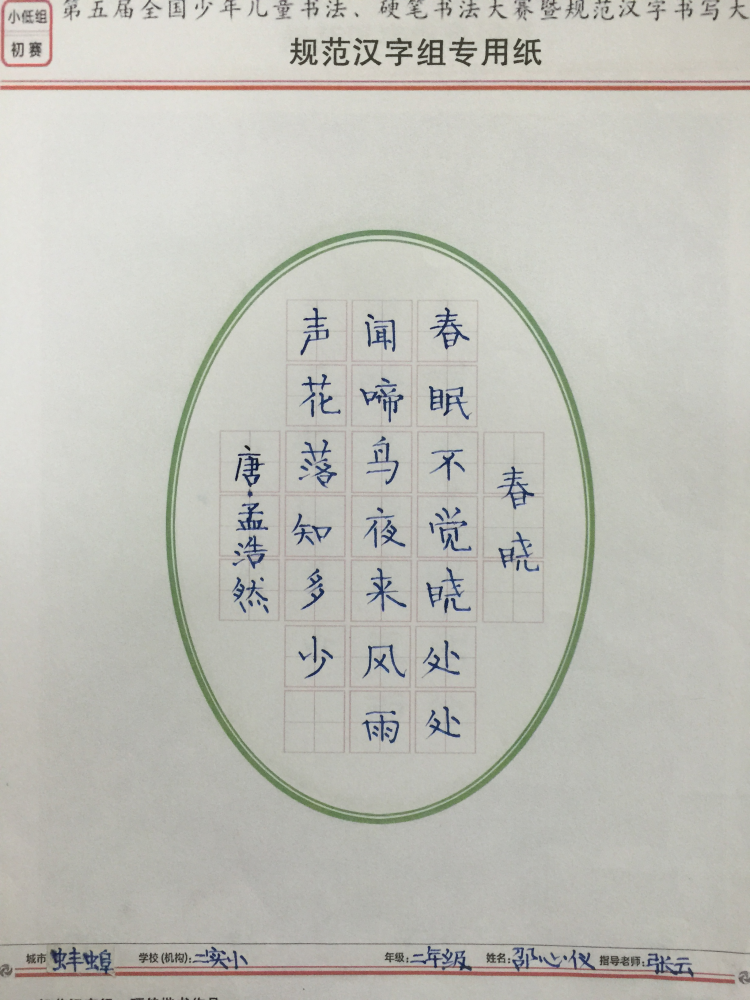 小低组
初赛
第五届全国少年儿童书法、硬笔书法大赛暨规范汉字书写大
规范汉字组专用纸
春晓
春眠不觉晓处处
闻啼鸟夜来风雨
声花落知多少
唐·孟浩然
城市 蚌蜂 学校(机构):二实小 年级:二年级 姓名:邵心仪 指导老师:张云